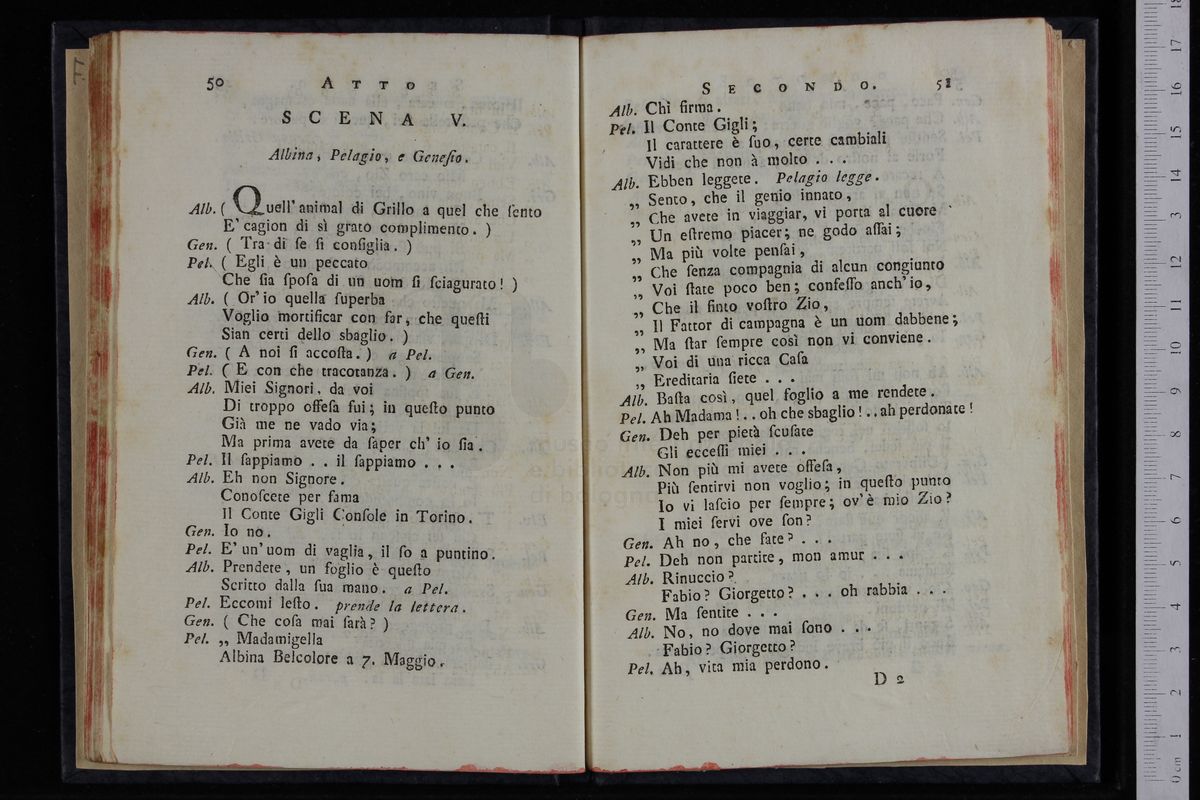 50 ATTO
SCENA V.
Albina, Pelagio, e Geneſio.
Alb. ( Quell' animal di Grillo a quel che ſento
E' cagion di sì grato complimento. )
Gen. ( Tra di ſe ſi conſiglia. )
Pel. ( Egli è un peccato
Che ſia ſpoſa di un uom ſi ſciagurato! )
Alb. ( Or' io quella ſuperba
Voglio mortificar con far, che queſti
Sian certi dello sbaglio. )
Gen. ( A noi ſi accoſta. ) a Pel.
Pel. ( E con che tracotanza. ) a Gen.
Alb. Miei Signori, da voi
Di troppo offeſa fui; in queſto punto
Già me ne vado via;
Ma prima avete da ſaper ch' io ſia.
Pel. Il ſappiamo . . il ſappiamo . . .
Alb. Eh non Signore.
Conoſcete per fama
Il Conte Gigli Conſole in Torino.
Gen. Io no.
Pel. E' un' uom di vaglia, il ſo a puntino.
Alb. Prendete, un foglio è queſto
Scritto dalla ſua mano. a Pel.
Pel. Eccomi leſto. prende la lettera.
Gen. ( Che coſa mai ſarà? )
Pel. „ Madamigella
Albina Belcolore a 7. Maggio.
SECONDO. 51
Alb. Chì firma.
Pel. Il Conte Gigli;
Il carattere è ſuo, certe cambiali
Vidi che non à molto . . .
Alb. Ebben leggete. Pelagio legge.
„ Sento, che il genio innato,
„ Che avete in viaggiar, vi porta al cuore
„ Un eſtremo piacer; ne godo aſſai;
„ Ma più volte penſai,
„ Che ſenza compagnia di alcun congiunto
„ Voi ſtate poco ben; confeſſo anch' io,
„ Che il finto voſtro Zio,
„ Il Fattor di campagna è un uom dabbene;
„ Ma ſtar ſempre così non vi conviene.
„ Voi di una ricca Caſa
„ Ereditaria ſiete . . .
Alb. Baſta così, quel foglio a me rendete.
Pel. Ah Madama! . . oh che sbaglio! . . ah perdonate!
Gen. Deh per pietà ſcuſate
Gli ecceſſi miei . . .
Alb. Non più mi avete offeſa,
Più ſentirvi non voglio; in queſto punto
Io vi laſcio per ſempre; ov' è mio Zio?
I miei ſervi ove ſon?
Gen. Ah no, che fate? . . .
Pel. Deh non partite, mon amur . . .
Alb. Rinuccio?
Fabio? Giorgetto? . . . oh rabbia . . .
Gen. Ma ſentite . . .
Alb. No, no dove mai ſono . . .
Fabio? Giorgetto?
Pel. Ah, vita mia perdono.
D 2